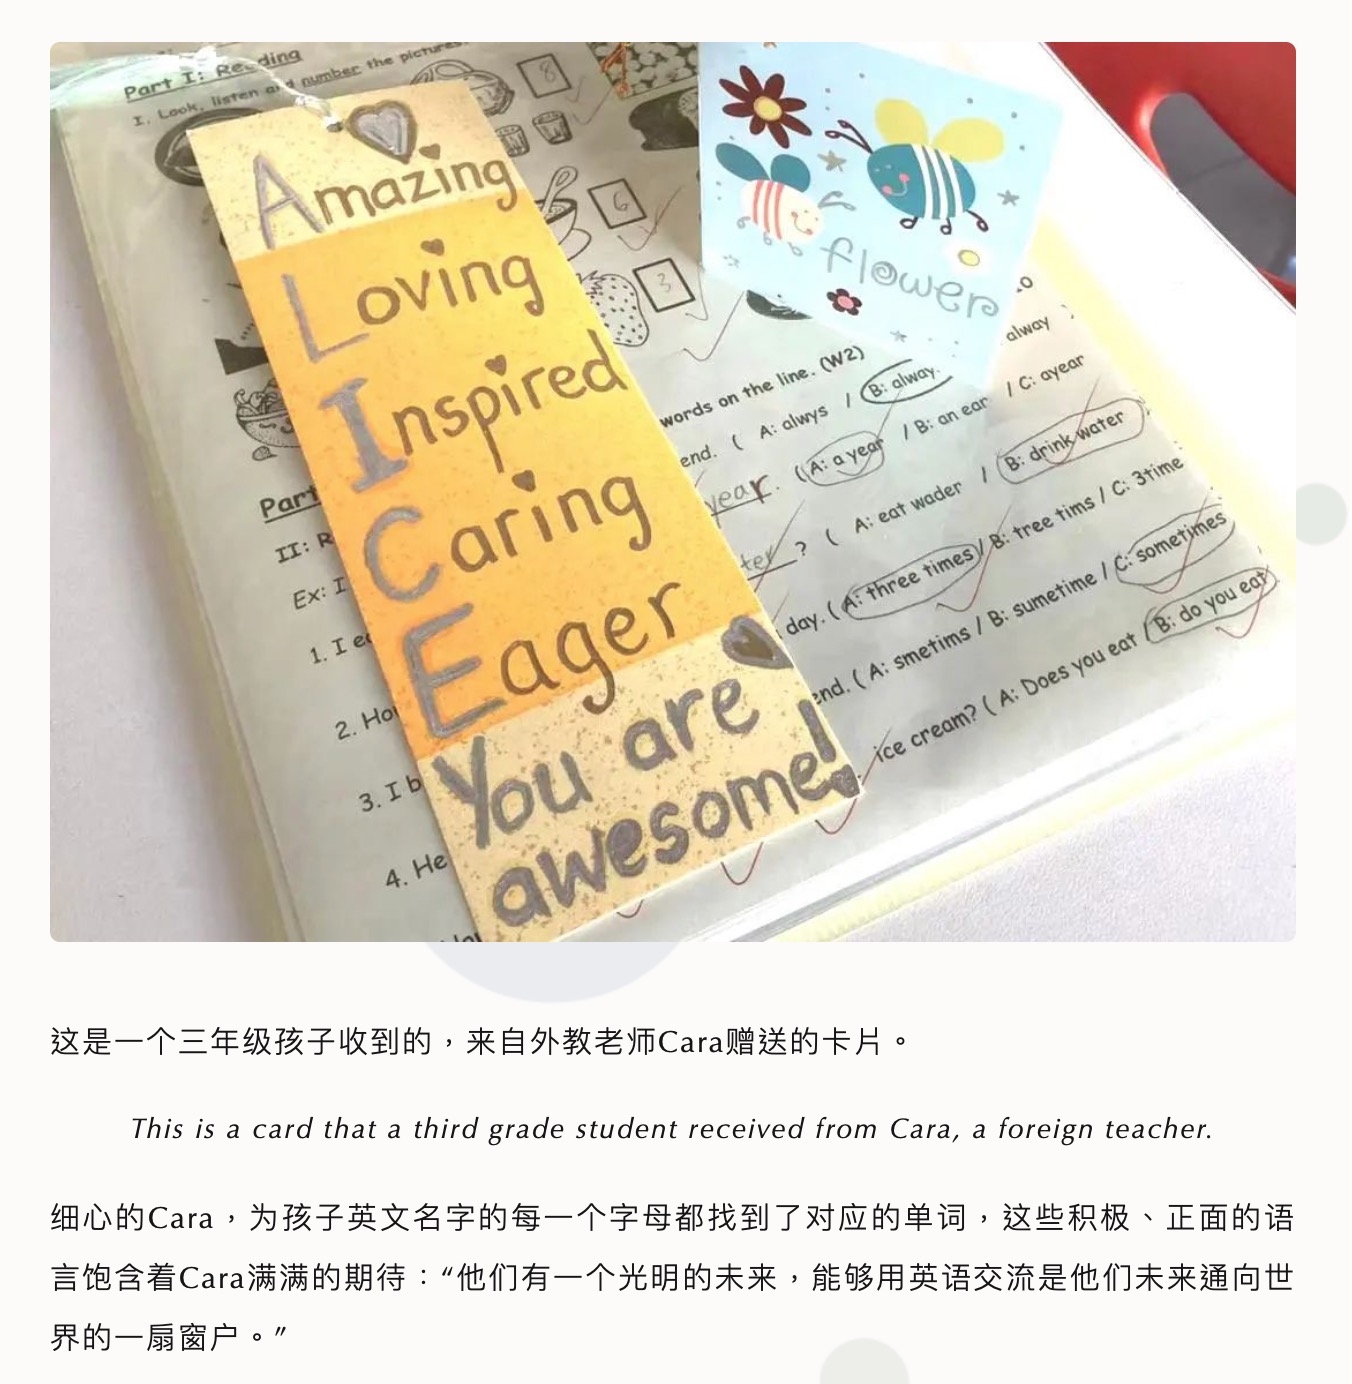 Part I: Reading
I. Look, listen and number the pictures.
8
6
3
Amazing
Loving
Inspired
Caring
Eager
You are
awesome!
flower
words on the line. (W2)
end. ( A: alwys / B: alway.
alway
year. (A: a year / B: an ear / C: ayear
? ( A: eat wader / B: drink water
day. ( A: three times / B: tree tims / C: 3time
end. ( A: smetims / B: sumetime / C: sometimes
ice cream? ( A: Does you eat / B: do you eat
Part
II: R
Ex: I
1. I ea
2. How
3. I b
4. He
这是一个三年级孩子收到的，来自外教老师Cara赠送的卡片。
This is a card that a third grade student received from Cara, a foreign teacher.
细心的Cara，为孩子英文名字的每一个字母都找到了对应的单词，这些积极、正面的语
言饱含着Cara满满的期待：“他们有一个光明的未来，能够用英语交流是他们未来通向世
界的一扇窗户。”